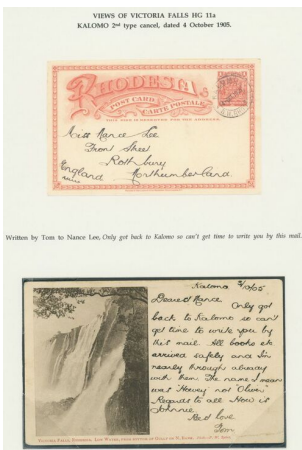 VIEWS OF VICTORIA FALLS HG 11a
KALOMO 2nd type cancel, dated 4 October 1905.
RHODESIA
POST CARD
CARTE POSTALE
Miss Nance Lee
Front Street
Rothbury
England Northumberland
Written by Tom to Nance Lee, Only got back to Kalomo so can't get time to write you by this mail.
Kalomo 3/10/05
Dearest Nance
Only got
back to Kalomo so can't
get time to write you by
this mail. All books etc
arrived safely and Im
nearly through already
with them The name I mean
was Howey not "Oliver"
Regards to all How is
Johnnie
Best love
Tom